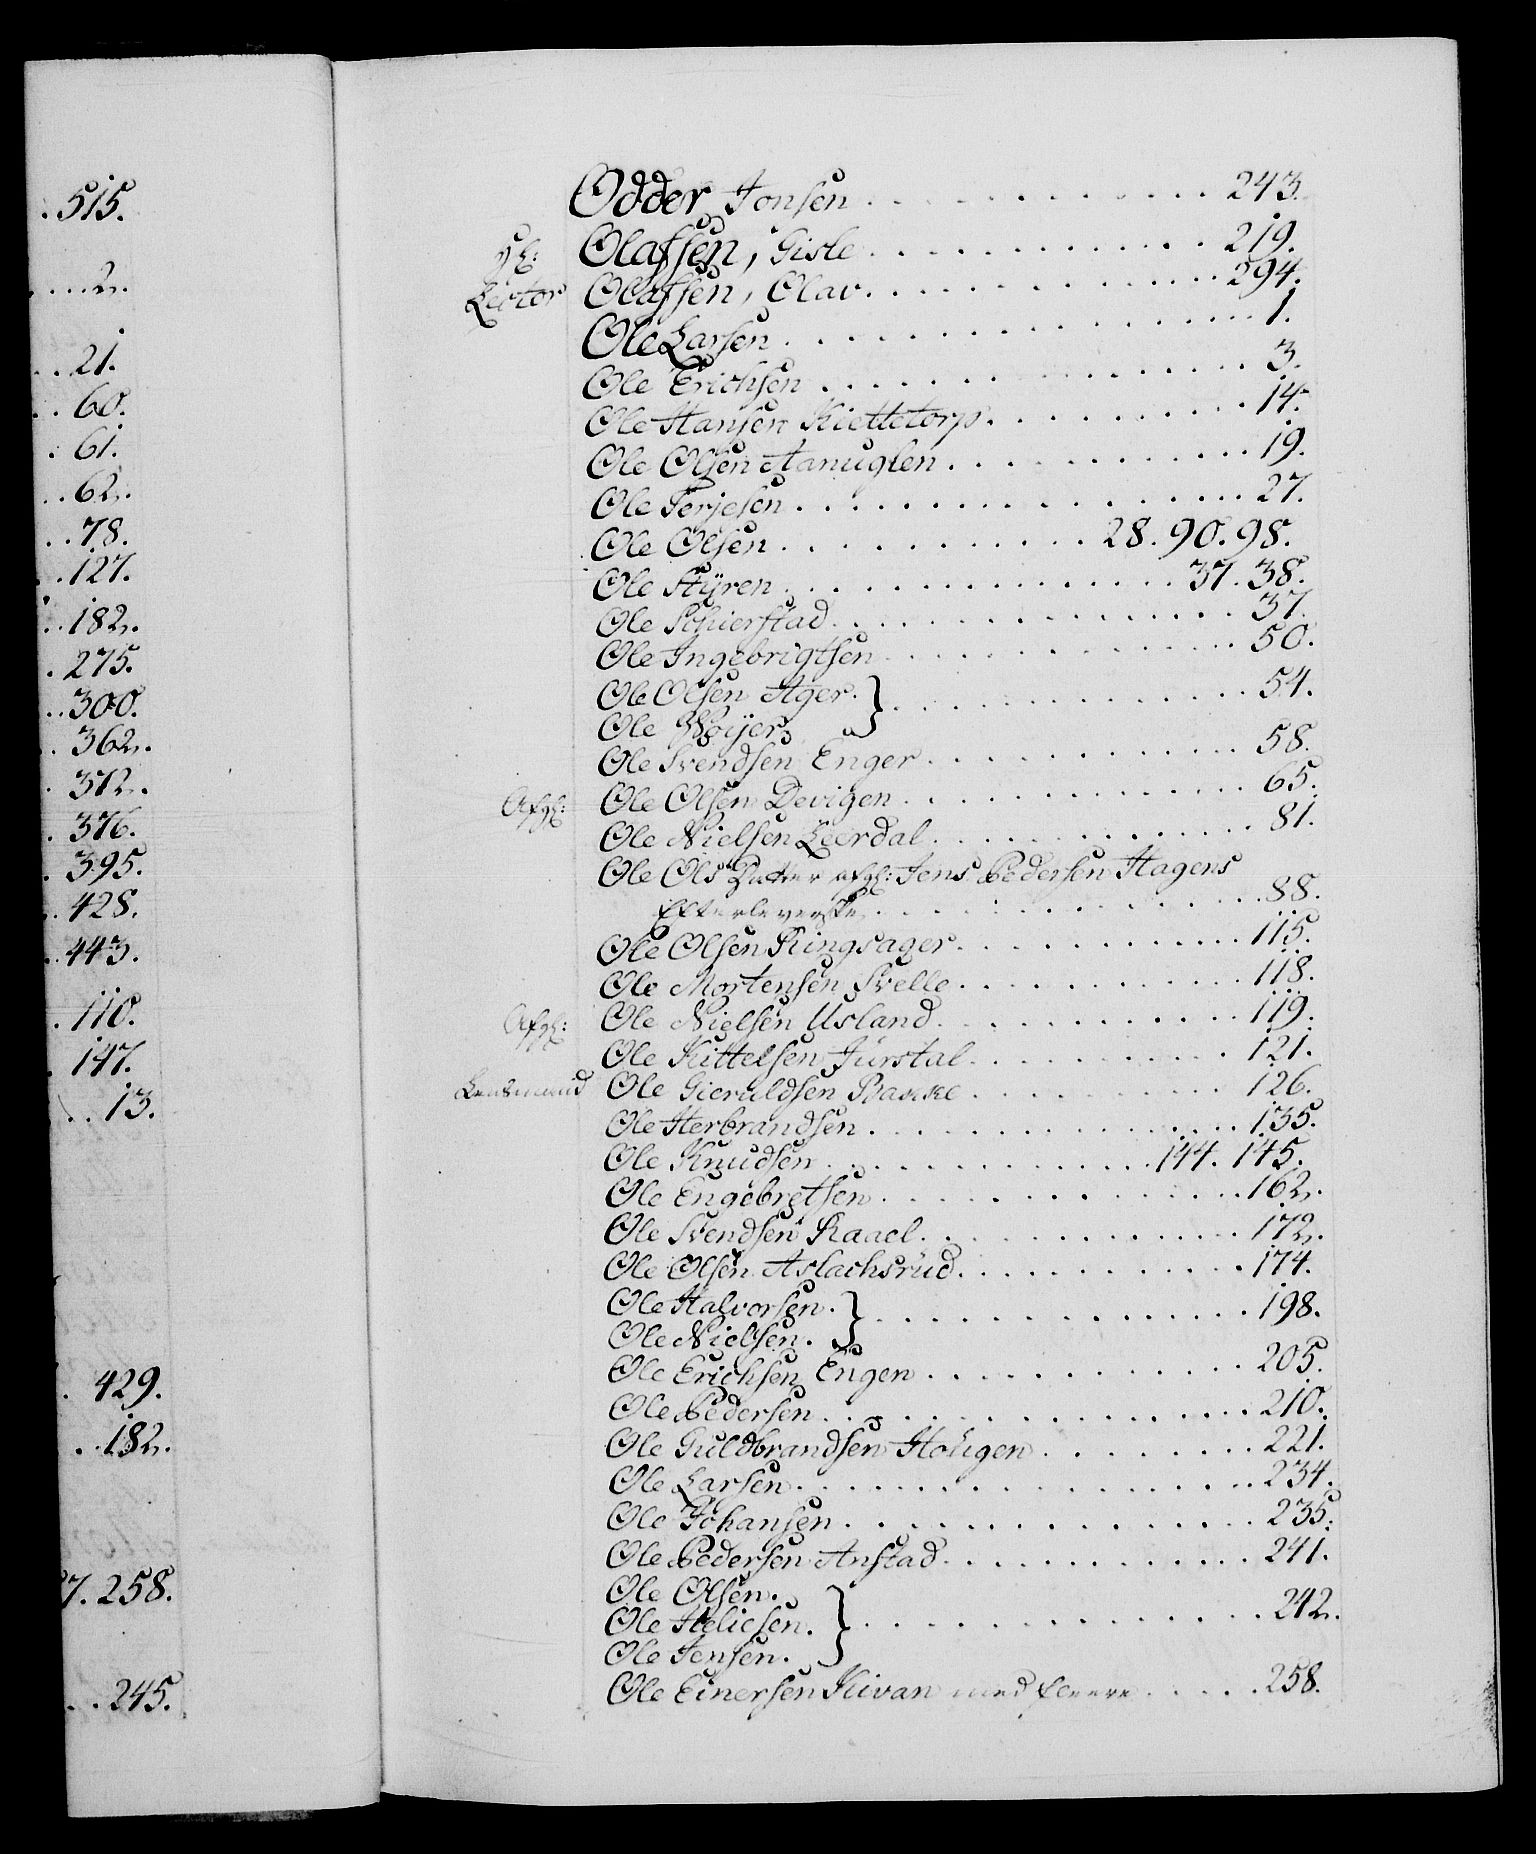 . 515.
. . . . 2.
. . 21.
. . 60.
. 61.
. . 62.
. . 78.
. . 127.
. . 182.
. 275.
. . 300.
. 362.
. 372.
. 376.
. 395.
. 428.
. . 443.
. 110.
. 147.
. . 13.
. 429.
. . 182.
7. 258.
. . 245.
Odder Jonsen . . . . . . . . . . . . . 243.
Olafsen, Gisle . . . . . . . . . . . . . 219.
Lector Olafsen, Olav . . . . . . . . . . . . . 294.
Ole Larsen . . . . . . . . . . . . . . . 1.
Ole Erichsen . . . . . . . . . . . . . . 3.
Ole Hansen Kiettetorp . . . . . . . . . . 14.
Ole Olsen Aanuglen . . . . . . . . . . . . 19.
Ole Terjesen . . . . . . . . . . . . . . . 27.
Ole Olsen . . . . . . . . . . . 28. 90. 98.
Ole Styren . . . . . . . . . . . . . 37. 38.
Ole Schierstad . . . . . . . . . . . . . . 37.
Ole Ingebrigtsen . . . . . . . . . . . . . 50.
Ole Olsen Ager. } . . . . . . . . . . . . 54.
Ole Woyer
Ole Svendsen Enger . . . . . . . . . . . . 58.
Afgl: Ole Olsen Devigen . . . . . . . . . . . . 65.
Ole Nielsen Leerdal . . . . . . . . . . . . 81.
Ole Ols Datter afgl: Jens Pedersen Hagens
Efterleverske . . . . . . . . . . . . . 88.
Ole Olsen Ringsager . . . . . . . . . . . . 115.
Ole Mortensen Svelle . . . . . . . . . . . 118.
Afgl: Ole Nielsen Usland . . . . . . . . . . . . 119.
Ole Kittelsen Jürstal . . . . . . . . . . . 121.
Lensmand Ole Gieruldsen Bakke . . . . . . . . . . 126.
Ole Herbrandsen . . . . . . . . . . . . . . 135.
Ole Knudsen . . . . . . . . . . . . 144. 145.
Ole Engebretsen . . . . . . . . . . . . . . 162.
Ole Svendsen Raael . . . . . . . . . . . . 172.
Ole Olsen Aslachsrüd . . . . . . . . . . . 174.
Ole Halvorsen. } . . . . . . . . . . . . . 198.
Ole Nielsen.
Ole Erichsen Engen . . . . . . . . . . . . 205.
Ole Pedersen . . . . . . . . . . . . . . . 210.
Ole Guldbrandsen Hougen . . . . . . . . 221.
Ole Larsen . . . . . . . . . . . . . . . . 234.
Ole Johansen . . . . . . . . . . . . . . . 235.
Ole Pedersen Anstad . . . . . . . . . . . . 241.
Ole Olsen.
Ole Heliesen. } . . . . . . . . . . . . . . 242.
Ole Jensen.
Ole Einersen Kivan med fleere . . . . . 258.